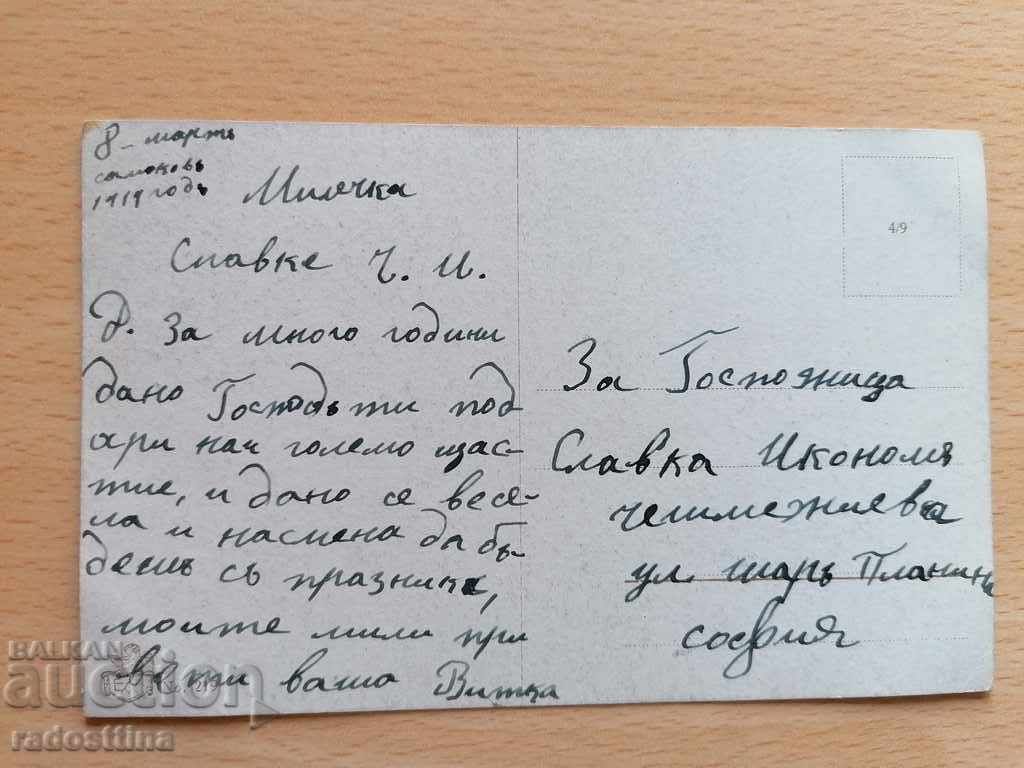 8 - мартъ
самоковъ
1919 годъ
Милечка
Славке Ч. И.
Д. За много години
дано Господъ ти под
ари най големо щас-
тие, и дано се весе-
ла и насмена да бъ-
дешъ съ празника,
моите мили при
вети ваша Витка
4/9
За Госпожица
Славка Икономъ
ул. шаръ Планина
софия
BALKAN
auction
radosttina